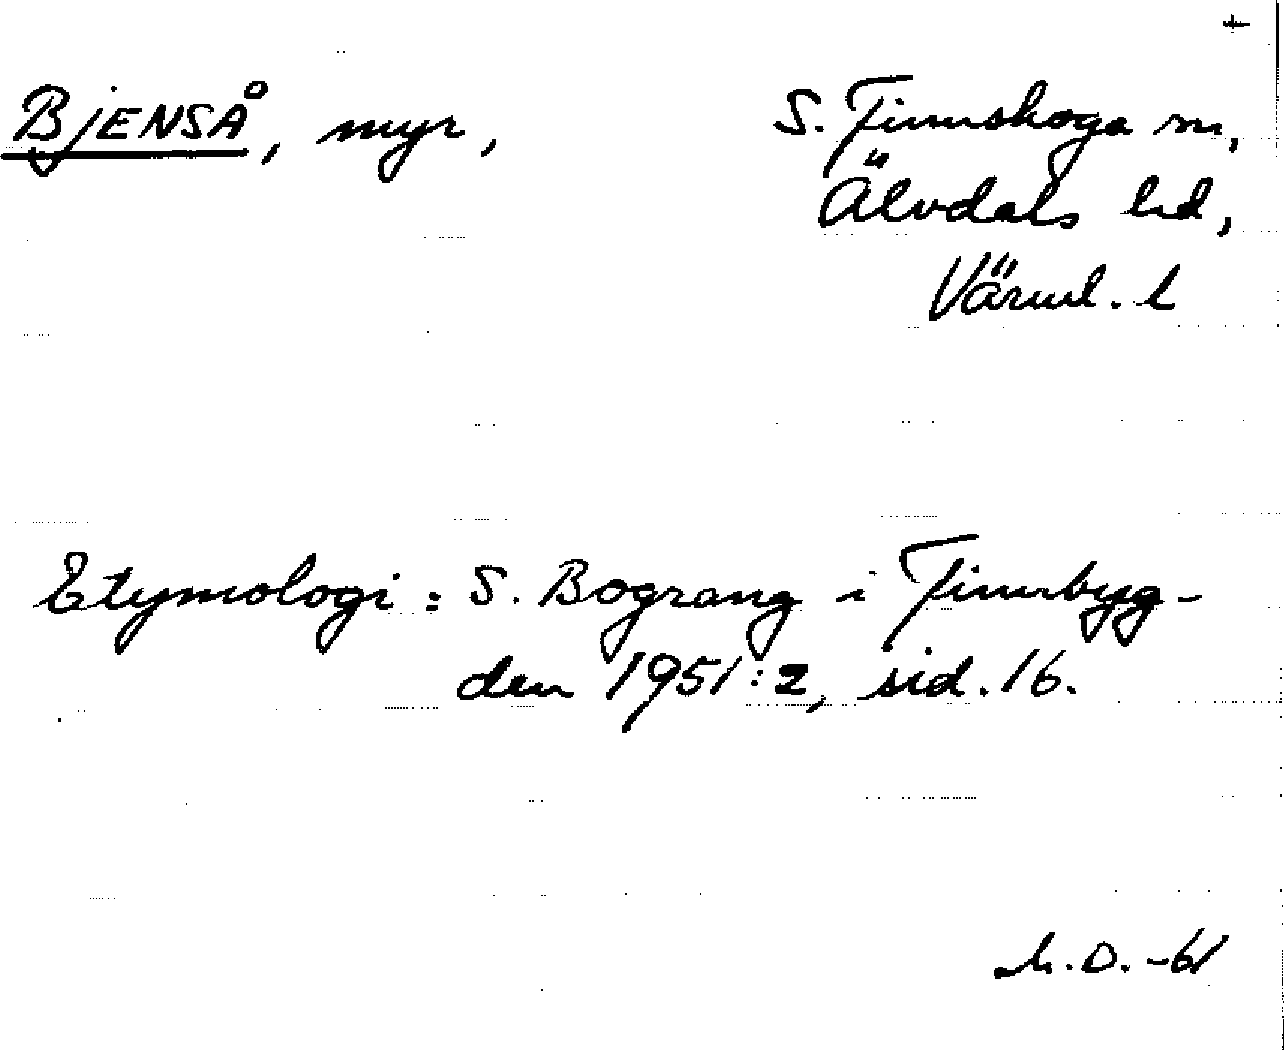 BJENSÅ, myr, S. Finnskoga sn,
Älvdals hd,
Värml. l
Etymologi: S. Bograng i Finnbyg-
den 1951:2, sid. 16.
-61